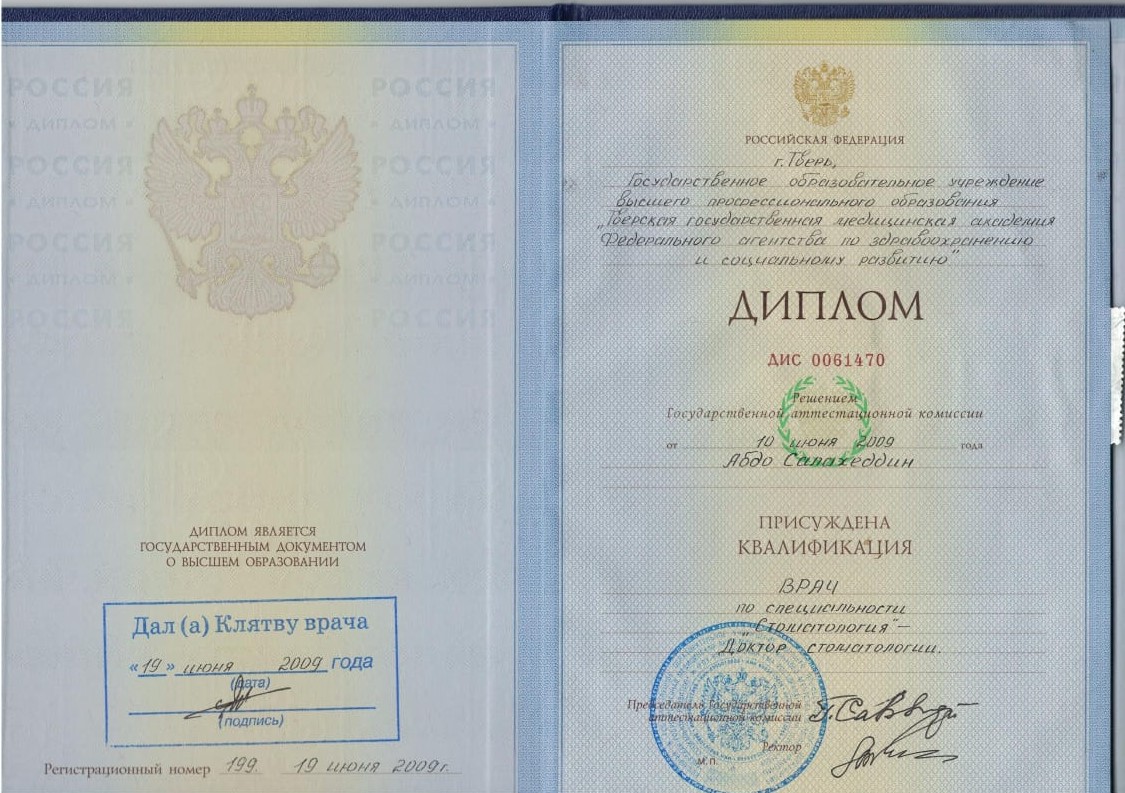 РОССИЯ РОССИЯ
• ДИПЛОМ • • ДИПЛОМ •
РОССИЯ РОССИЯ
• ДИПЛОМ • • ДИПЛОМ •
РОССИЯ РОССИЯ
• ДИПЛОМ • • ДИПЛОМ •
РОССИЯ РОССИЯ
ДИПЛОМ ЯВЛЯЕТСЯ
ГОСУДАРСТВЕННЫМ ДОКУМЕНТОМ
О ВЫСШЕМ ОБРАЗОВАНИИ
Дал (а) Клятву врача
«19» июня 2009 года
(дата)
(подпись)
Регистрационный номер 199. 19 июня 2009г.
РОССИЙСКАЯ ФЕДЕРАЦИЯ
г. Тверь,
Государственное образовательное учреждение
высшего профессионального образования
„Тверская государственная медицинская академия
Федерального агентства по здравоохранению
и социальному развитию"
ДИПЛОМ
ДИС 0061470
Решением
Государственной аттестационной комиссии
от 10 июня 2009 года
Абдо Салахеддин
ПРИСУЖДЕНА
КВАЛИФИКАЦИЯ
ВРАЧ
по специальности
„Стоматология"–
Доктор стоматологии.
Председатель Государственной
аттестационной комиссии
Ректор
М.П.